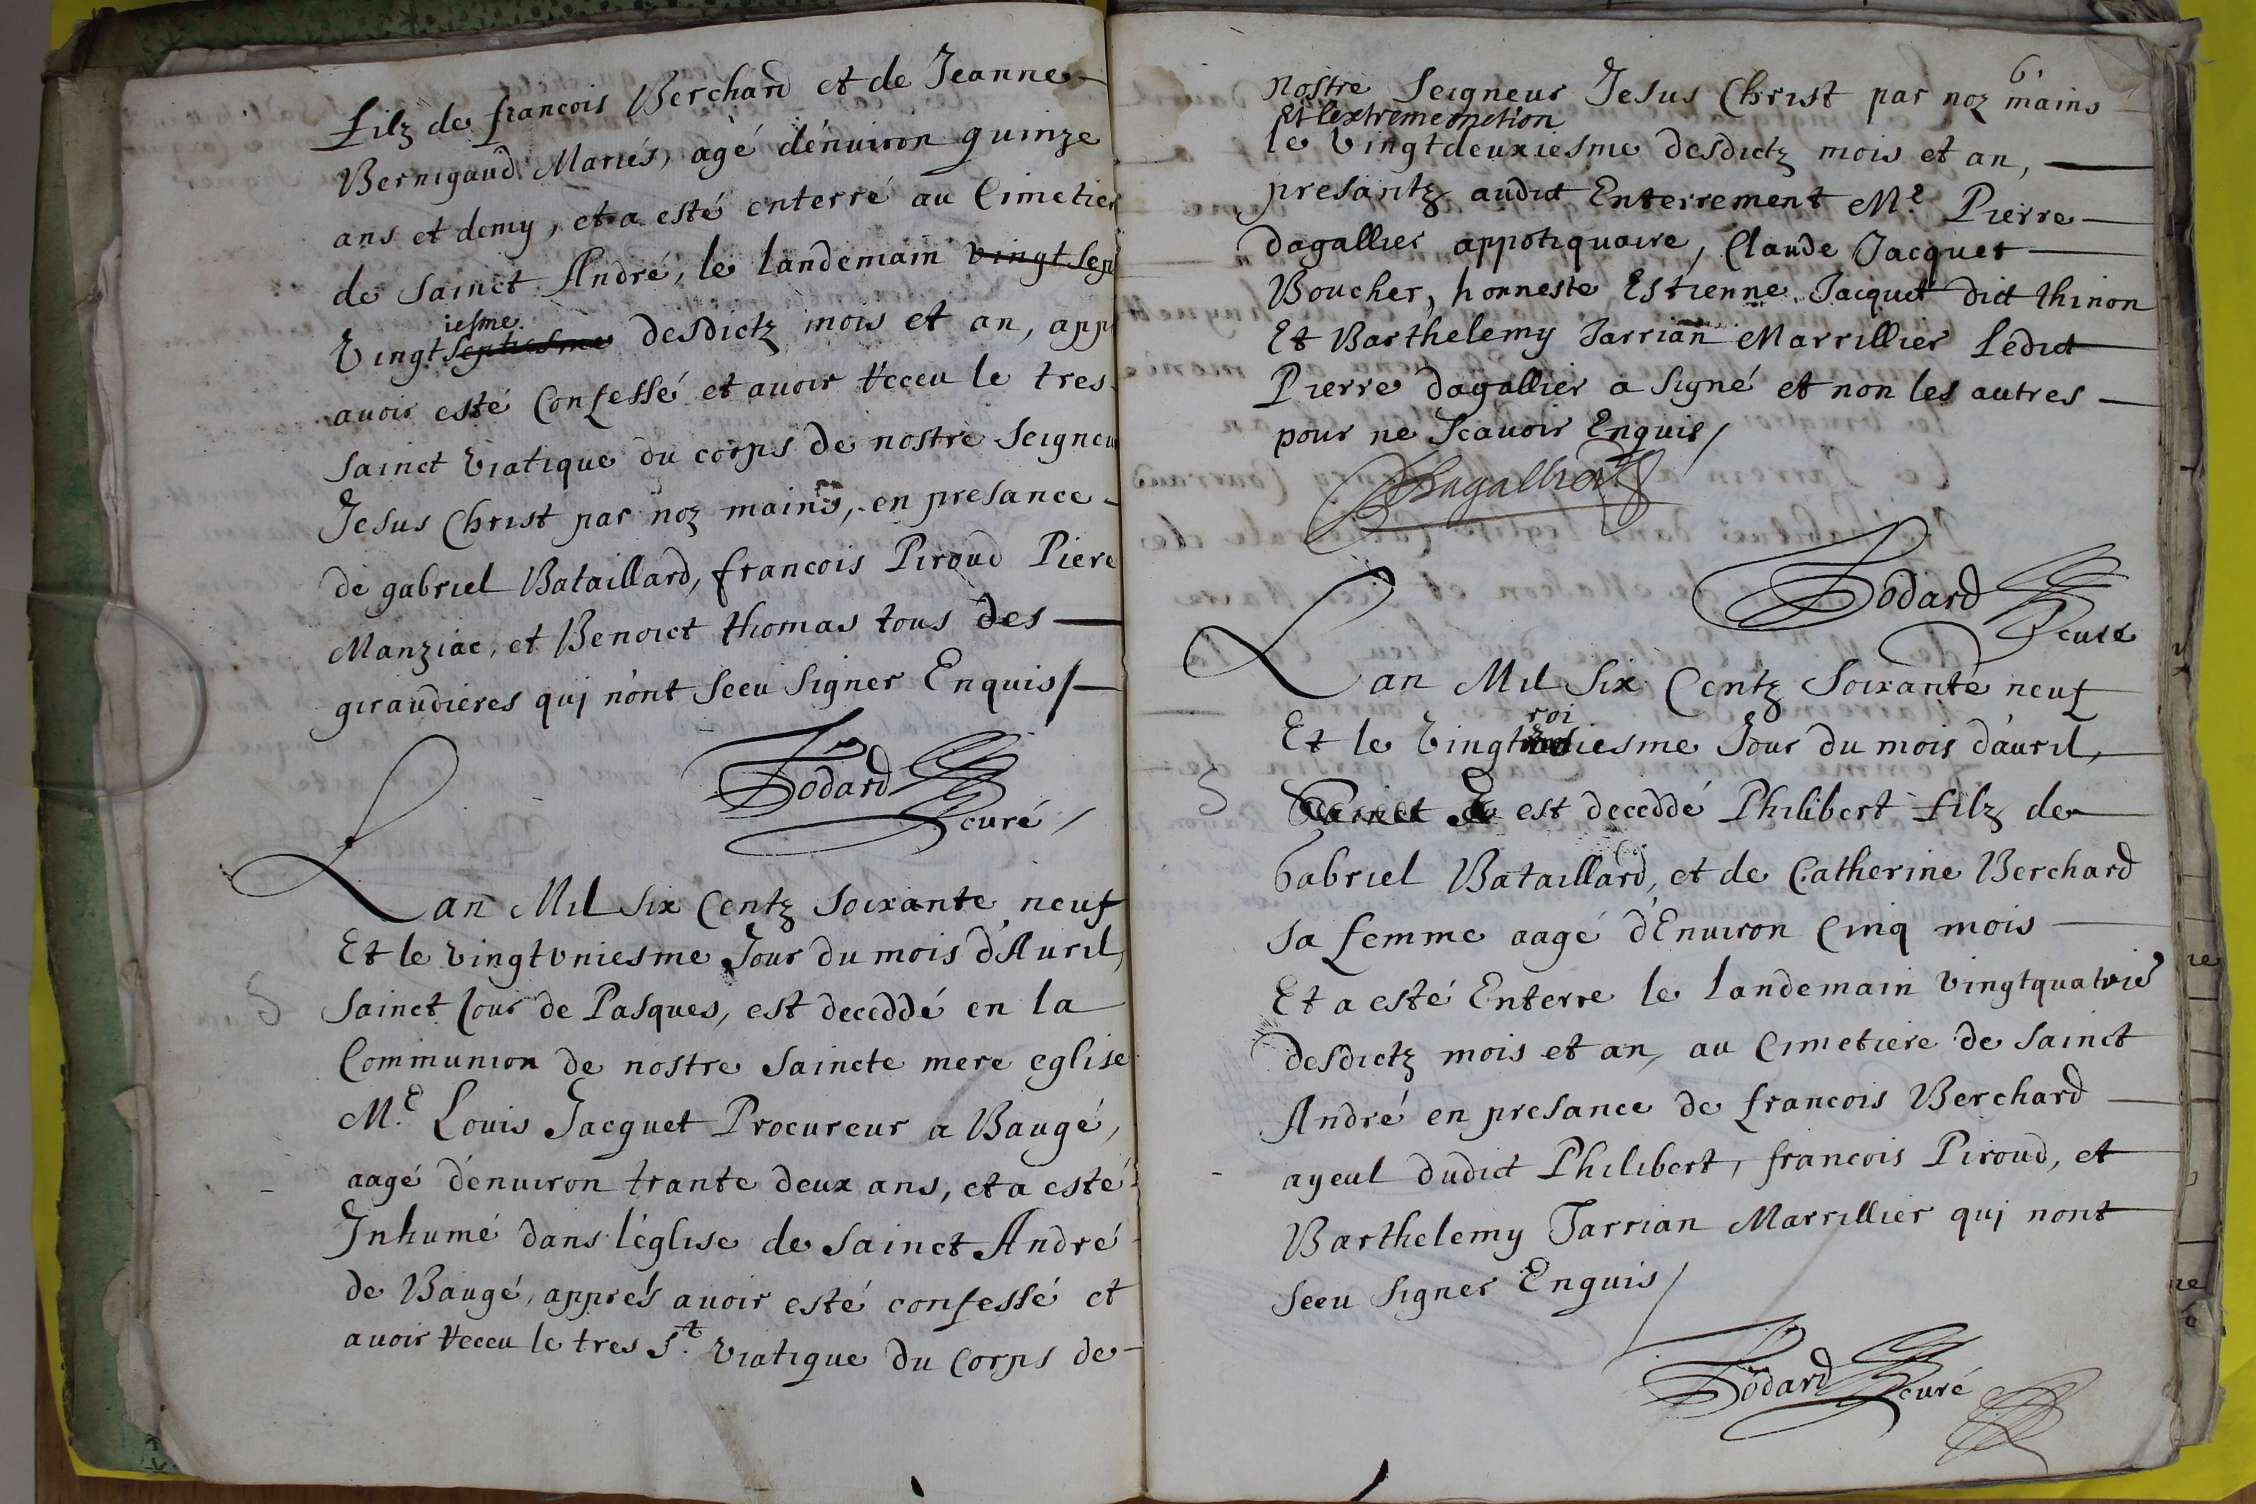 filz de francois Berchard et de Jeanne
Bernigaud Mariés, agé d'enuiron quinze
ans et demy, et a esté enterré au Cimetier
de Sainct André, le landemain vingt sep
iesme
Vingt septiesme desdictz mois et an, app
avoir esté Confessé et auoir receu le tres
sainct viatique du corps de nostre Seigneu
Jesus Christ par noz mains, en presance
de gabriel Bataillard, francois Piroud Piere
Manziac, et Benoict thomas tous des
giraudieres qui n'ont sceu signer Enquis /
Bodard
curé /
Lan Mil six Centz soixante neuf
Et le vingtvniesme Jour du mois d'Auril,
sainct Jour de Pasques, est deceddé en la
Communion de nostre saincte mere eglise
Me. Louis Jacquet Procureur a Baugé,
aagé d'enuiron trante deux ans, et a esté
Inhumé dans l'eglise de Sainct André
de Baugé, apprés auoir esté confessé et
auoir receu le tres St. viatique du Corps de
6.
nostre Seigneur Jesus Christ par noz mains
Et l'extremeonction
le vingtdeuxiesme desdictz mois et an,
presantz audict Enterrement Me. Pierre
dagallier appotiquaire, Claude Jacquet
Boucher, honneste Estienne Jacquet dict thinon
Et Barthelemy Tarrian Marrillier Ledict
Pierre dagallier a signé et non les autres
pour ne scauoir Enquis /
Dagallier
Bodard
curé
Lan Mil Six Centz Soixante neuf
roi
Et le Vingt iesme Jour du mois d'auril,
Sainct est deceddé Philibert filz de
Gabriel Bataillard, et de Catherine Berchard
sa femme aagé d'Enuiron Cinq mois
Et a esté Enterre le landemain vingtquatrie
desdictz mois et an, au Cimetiere de Sainct
André en presance de francois Berchard
ayeul dudict Philibert, francois Piroud, et
Barthelemy Tarrian Marrillier qui nont
sceu signer Enquis /
Bodard curé